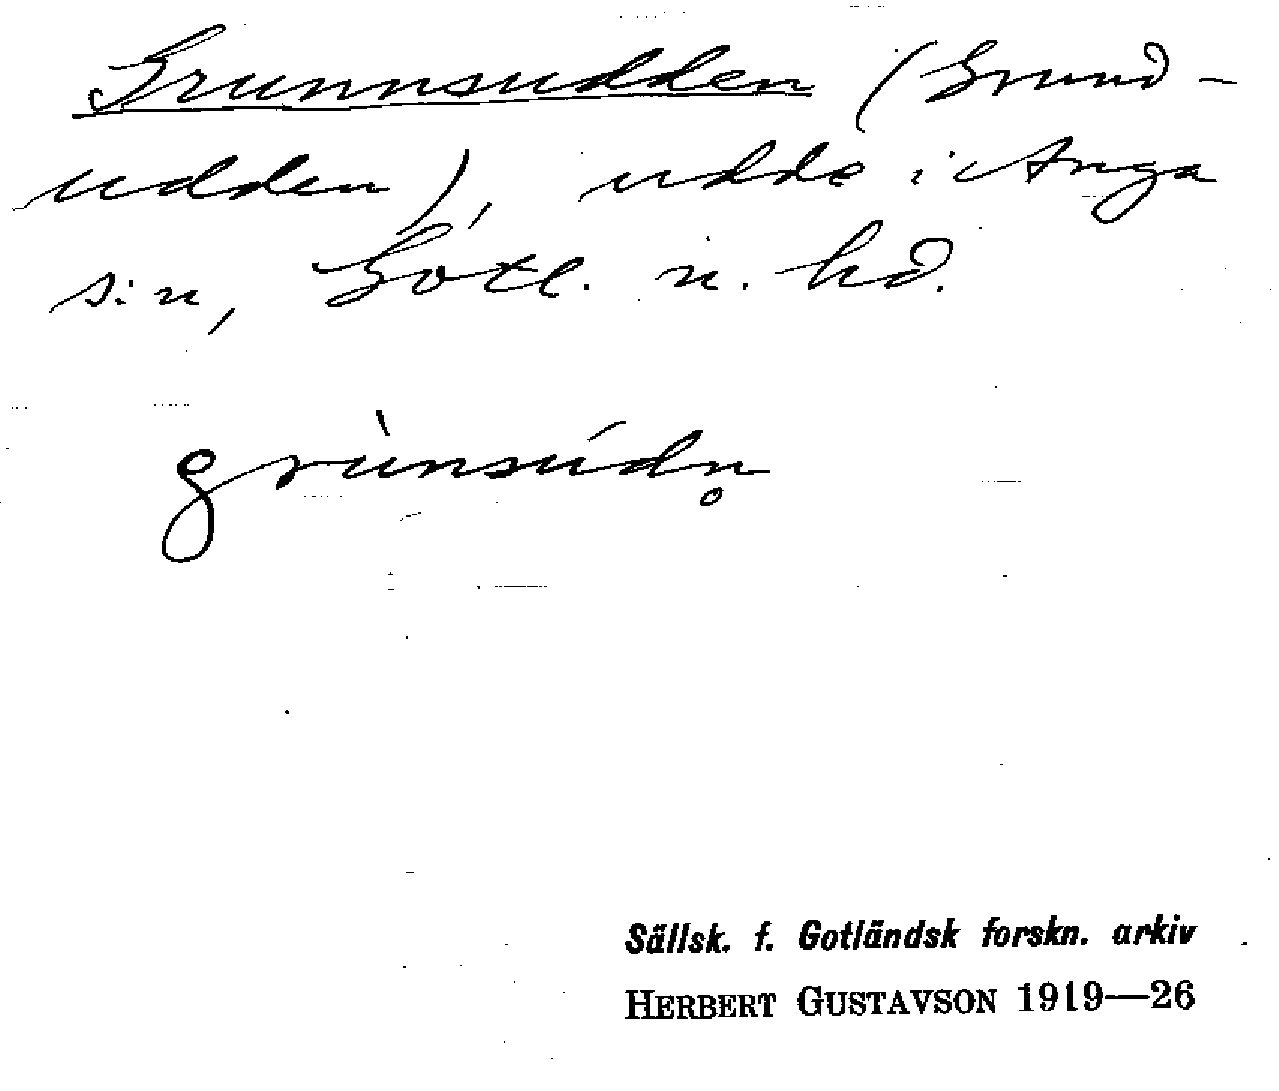 Grunnsudden (Grund-
udden), udde i Anga
s:n, Gotl. n. hd.
grùnsúdn̥
Sällsk. f. Gotländsk forskn. arkiv
HERBERT GUSTAVSON 1919—26